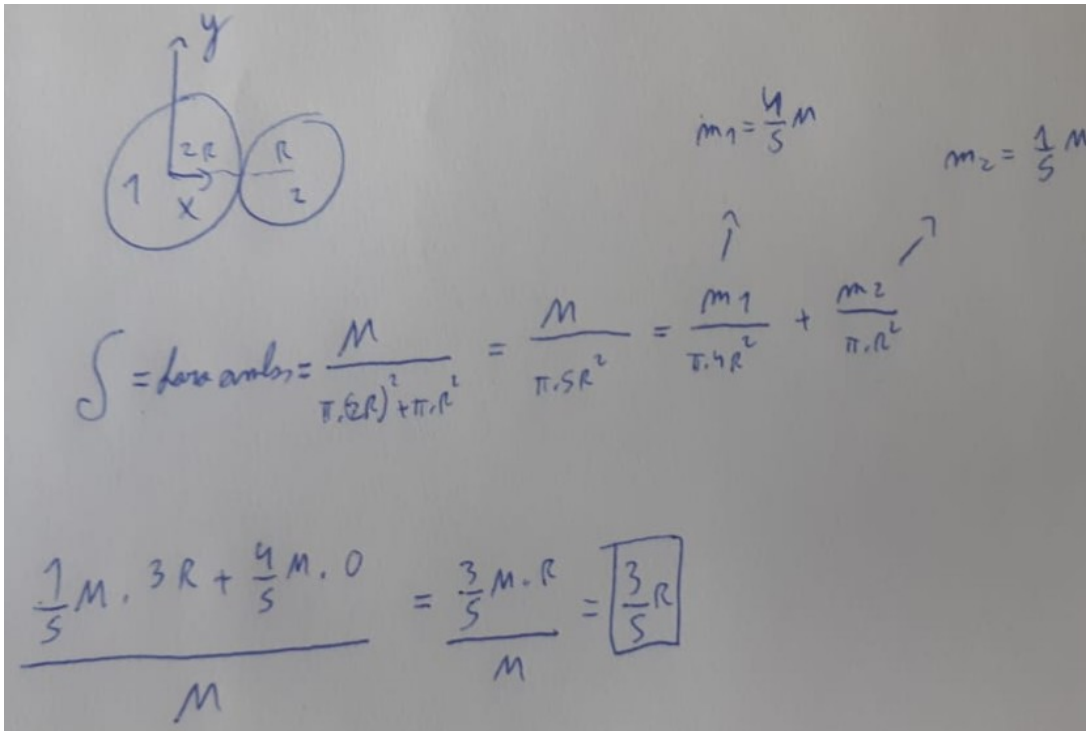 y
2R R
1 x 2
m₁ = 4/5 M
m₂ = 1/5 M
∫ = = M / (π.(2R)² + π.R²) = M / (π.5R²) = m1 / (π.4R²) + m2 / (π.R²)
(1/5 M . 3R + 4/5 M . 0) / M = (3/5 M . R) / M = 3/5 R